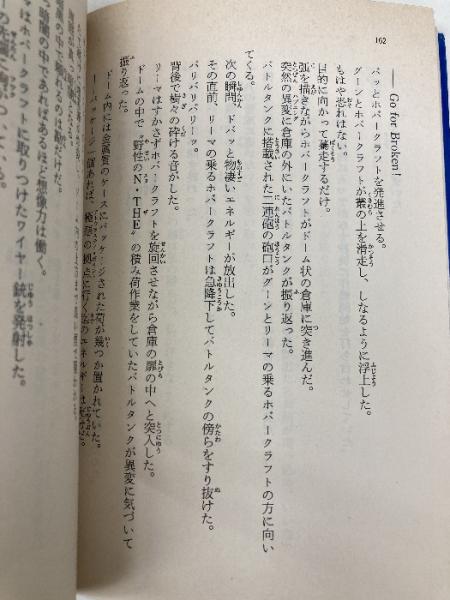 162
——Go for Broken!!
パッとホバークラフトを発進させる。
グーンとホバークラフトが叢の上を滑走し、しなるように浮上した。
もはや恐れはない。
目的に向かって驀走するだけ。
弧を描きながらホバークラフトがドーム状の倉庫に突き進んだ。
突然の異変に倉庫の外にいたバトルタンクが振り返った。
バトルタンクに搭載された二連砲の砲口がグーンとリーマの乗るホバークラフトの方に向い
てくる。
次の瞬間、ドバッと物凄いエネルギーが放出した。
その直前、リーマの乗るホバークラフトは急降下してバトルタンクの傍らをすり抜けた。
バリバリバリーッ。
背後で樹々の砕ける音がした。
リーマはすかさずホバークラフトを旋回させながら倉庫の扉の中へと突入した。
ドームの中で〝野性のN・THE〟の積み荷作業をしていたバトルタンクが異変に気づいて
振り返った。
ドーム内には金属質のケースにパッケージされた荷が幾つか置かれていた。
——パッケージ一個あれば、
暗闇の中で
あるほど想像力は働く。
マはホバークラフト
取りつけたワイヤー銃を発射した。